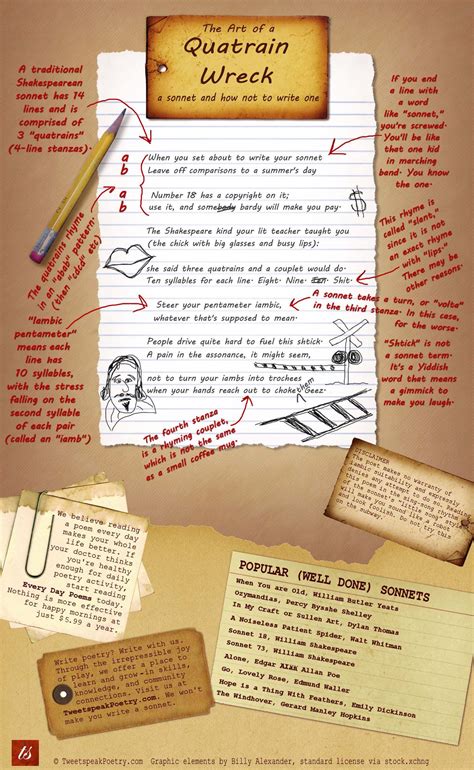 The Art of a
Quatrain
Wreck
a sonnet and how not to write one
A traditional
Shakespearean
sonnet has 14
lines and is
comprised of
3 "quatrains"
(4-line stanzas).
If you end
a line with
a word
like "sonnet,"
you're screwed.
You'll be like
that one kid
in marching
band. You know
the one.
a
b
When you set about to write your sonnet
Leave off comparisons to a summer's day
a
b
Number 18 has a copyright on it;
use it, and somebody bardy will make you pay.
The Shakespeare kind your lit teacher taught you
(the chick with big glasses and busy lips):
she said three quatrains and a couplet would do.
Ten syllables for each line. Eight. Nine. Ten. Shit.
The quatrains rhyme
in an "abab" pattern.
(then "cdcd" etc)
This rhyme is
called "slant,"
since it is
not an exact
rhyme with
"lips."
There may be
other reasons.
Steer your pentameter iambic,
whatever that's supposed to mean.
A sonnet takes a turn, or "volta"
in the third stanza. In this case,
for the worse.
People drive quite hard to fuel this shtick.
A pain in the assonance, it might seem,
"Iambic
pentameter"
means each
line has
10 syllables,
with the stress
falling on the
second syllable
of each pair
(called an "iamb")
"Shtick" is not
a sonnet term.
It's a Yiddish
word that means
a gimmick to
make you laugh.
not to turn your iambs into trochees
when your hands reach out to choke them. Geez.
The fourth stanza
is a rhyming couplet,
which is not the same
as a small coffee mug.
DISCLAIMER
The poet makes no warranty of
iambic suitability and expressly
denies any attempt to do so. Reading
this poem in the sing-song rhythm
of the sonnet's "little song" style
will make you sound like a robot
and look foolish. Do not try this
on the subway.
We believe reading
a poem every day
makes your whole
life better. If
your doctor thinks
you're healthy
enough for daily
poetry activity,
start reading
Every Day Poems today.
Nothing is more effective
for happy mornings at
just $5.99 a year.
POPULAR (WELL DONE) SONNETS
When You are Old, William Butler Yeats
Ozymandias, Percy Bysshe Shelley
In My Craft or Sullen Art, Dylan Thomas
A Noiseless Patient Spider, Walt Whitman
Sonnet 18, William Shakespeare
Sonnet 73, William Shakespeare
Alone, Edgar Allan Poe
Go, Lovely Rose, Edmund Waller
Hope is a Thing With Feathers, Emily Dickinson
The Windhover, Gerard Manley Hopkins
Write poetry? Write with us.
Through the irrepressible joy
of play, we offer a place to
learn and grow-in skills,
knowledge, and community
connections. Visit us at
TweetspeakPoetry.com. We won't
make you write a sonnet.
ts
© TweetspeakPoetry.com Graphic elements by Billy Alexander, standard license via stock.xchng